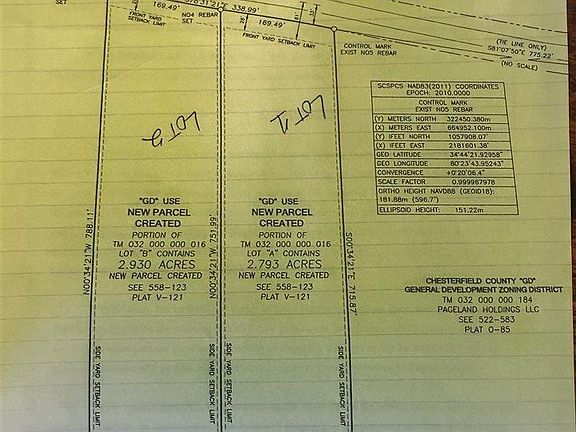 S78°31'21"E 338.99'
169.49'
FRONT YARD
SETBACK LIMIT
NO4 REBAR
SET
SET
169.49'
FRONT YARD
SETBACK LIMIT
CONTROL MARK
EXIST NO5 REBAR
(TIE LINE ONLY)
S81°07'50"E 775.22'
(NO SCALE)
LOT 2
LOT 1
SCSPCS NAD83(2011) COORDINATES
EPOCH: 2010.0000
CONTROL MARK
EXIST NO5 REBAR
(Y) METERS NORTH 322450.380m
(X) METERS EAST 664952.100m
(Y) IFEET NORTH 1057908.07
(X) IFEET EAST 2181601.38'
GEO LATITUDE 34°44'21.92958"
GEO LONGITUDE 80°23'43.95243"
CONVERGENCE +0°20'06.4"
SCALE FACTOR 0.999967978
ORTHO HEIGHT NAVD88 (GEOID18):
181.88m (596.7')
ELLIPSOID HEIGHT: 151.22m
N00°34'21"W 788.11'
"GD" USE
NEW PARCEL
CREATED
PORTION OF
TM 032 000 000 016
LOT "B" CONTAINS
2.930 ACRES
NEW PARCEL CREATED
SEE 558-123
PLAT V-121
N00°34'21"W 751.99'
"GD" USE
NEW PARCEL
CREATED
PORTION OF
TM 032 000 000 016
LOT "A" CONTAINS
2.793 ACRES
NEW PARCEL CREATED
SEE 558-123
PLAT V-121
S00°34'21"E 715.87'
CHESTERFIELD COUNTY "GD"
GENERAL DEVELOPMENT ZONING DISTRICT
TM 032 000 000 184
PAGELAND HOLDINGS LLC
SEE 522-583
PLAT O-85
SIDE YARD SETBACK LIMIT
SIDE YARD SETBACK LIMIT
SIDE YARD SETBACK LIMIT
SIDE YARD SETBACK LIMIT